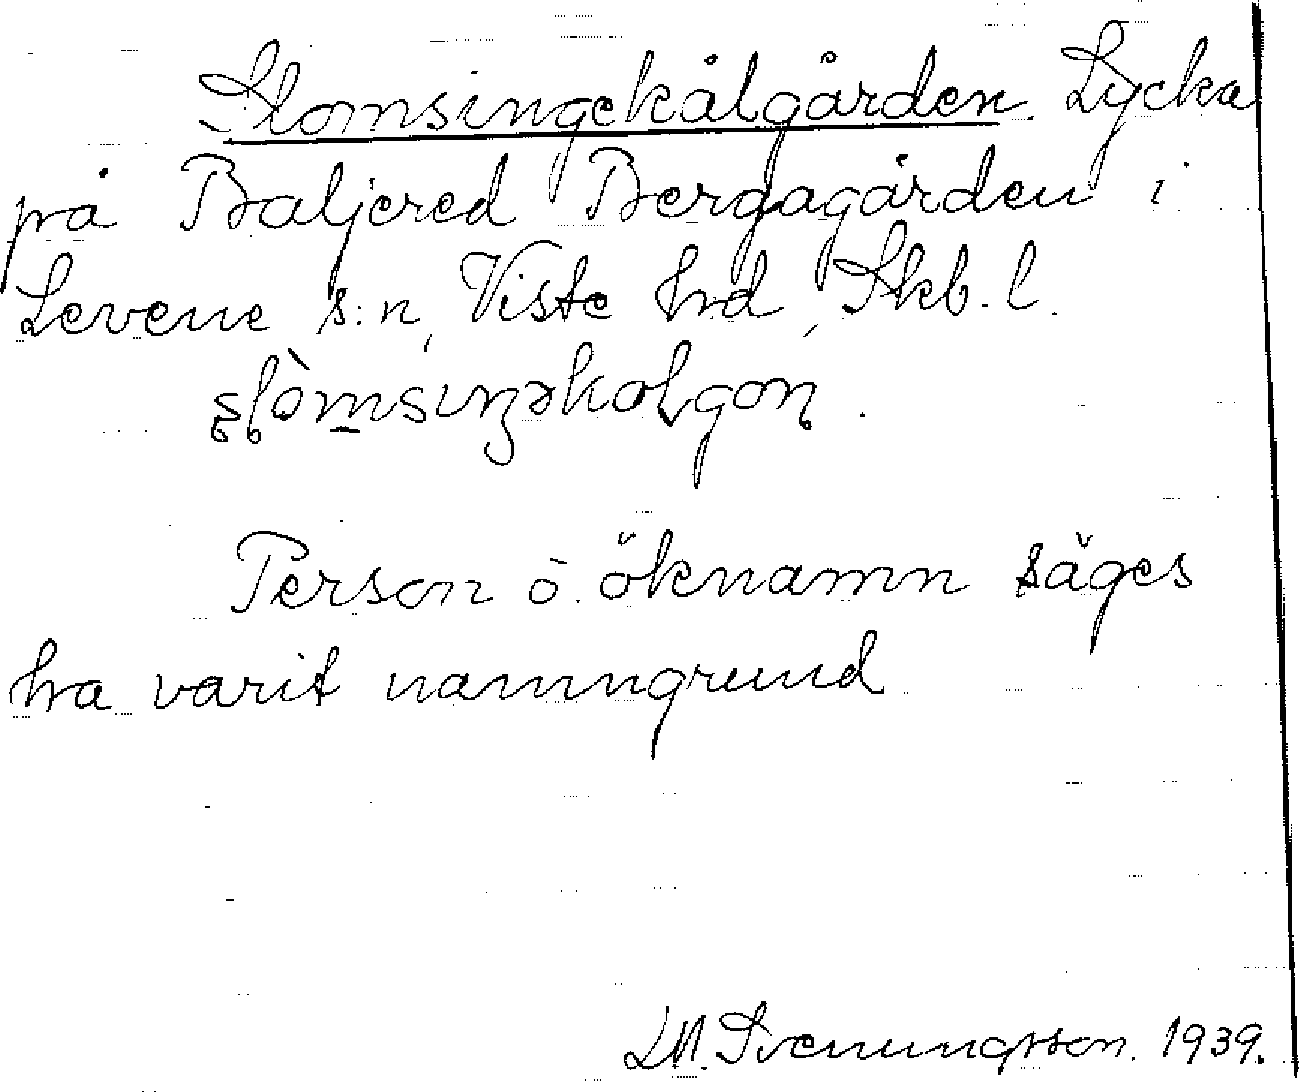 Slomsingekålgården. Lycka
på Baljered Bergagården i
Levene s:n, Viste hrd, Skb. l.
slòmsıŋəkolgoɳ.
Person ö. öknamn säges
ha varit namngrund
LM. Svenungsson. 1939.